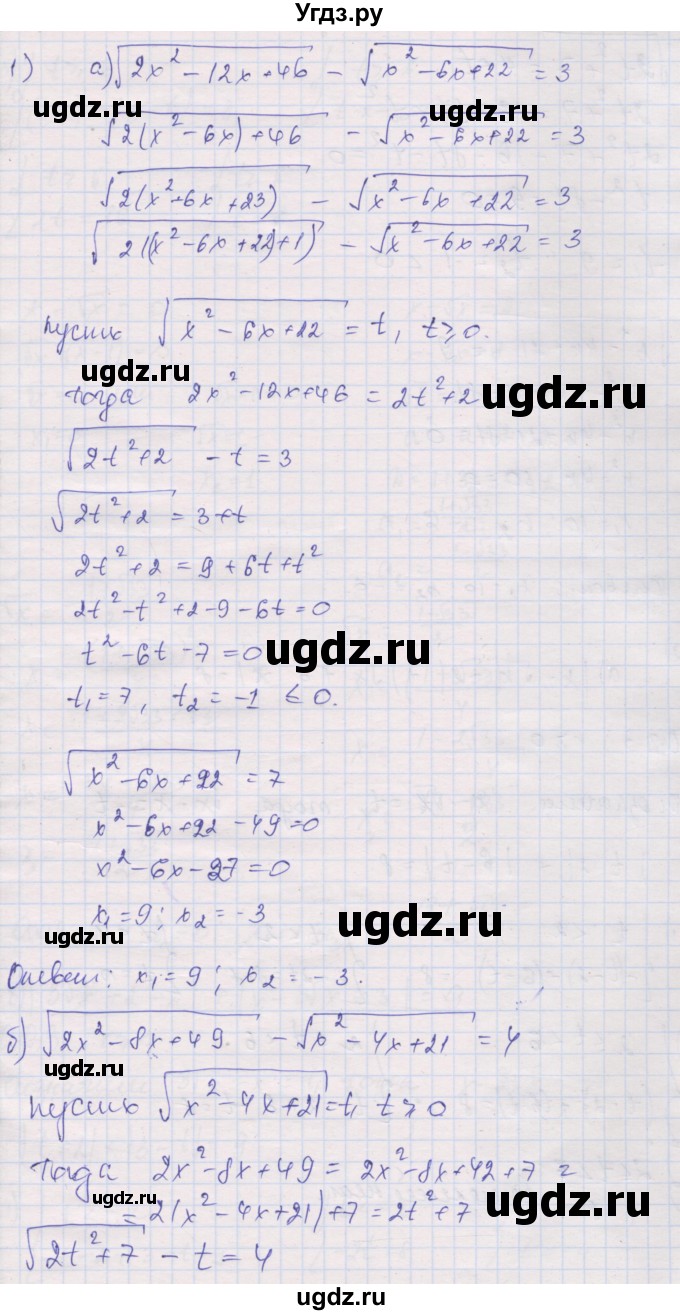 Угдз.ру
1) а) √(2x² - 12x + 46) - √(x² - 6x + 22) = 3
ugdz.ru ugdz.ru
√(2(x² - 6x) + 46) - √(x² - 6x + 22) = 3
√(2(x² + 6x + 23)) - √(x² - 6x + 22) = 3
√(2((x² - 6x + 22) + 1)) - √(x² - 6x + 22) = 3
ugdz.ru ugdz.ru
Пусть √(x² - 6x + 22) = t, t ≥ 0.
ugdz.ru
Тогда 2x² - 12x + 46 = 2t² + 2
ugdz.ru
√(2t² + 2) - t = 3
√(2t² + 2) = 3 + t
ugdz.ru
2t² + 2 = 9 + 6t + t²
2t² - t² + 2 - 9 - 6t = 0
t² - 6t - 7 = 0
ugdz.ru
t₁ = 7, t₂ = -1 ≤ 0.
ugdz.ru
√(x² - 6x + 22) = 7
x² - 6x + 22 - 49 = 0
x² - 6x - 27 = 0
x₁ = 9; x₂ = -3
ugdz.ru
ugdz.ru
Ответ: x₁ = 9; x₂ = -3.
б) √(2x² - 8x + 49) - √(x² - 4x + 21) = 4
ugdz.ru
Пусть √(x² - 4x + 21) = t, t ≥ 0
Тогда 2x² - 8x + 49 = 2x² - 8x + 42 + 7 =
ugdz.ru
= 2(x² - 4x + 21) + 7 = 2t² + 7
√(2t² + 7) - t = 4
ugdz.ru
ugdz.ru